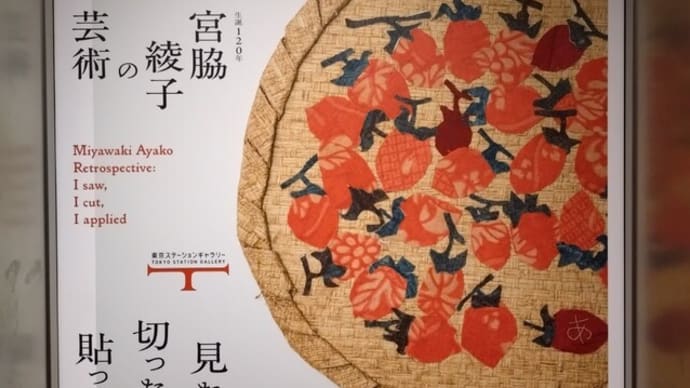 生誕120年
宮脇
綾子
の
芸術
Miyawaki Ayako
Retrospective:
I saw,
I cut,
I applied
東京ステーションギャラリー
TOKYO STATION GALLERY
見た
切った
貼っ
あ